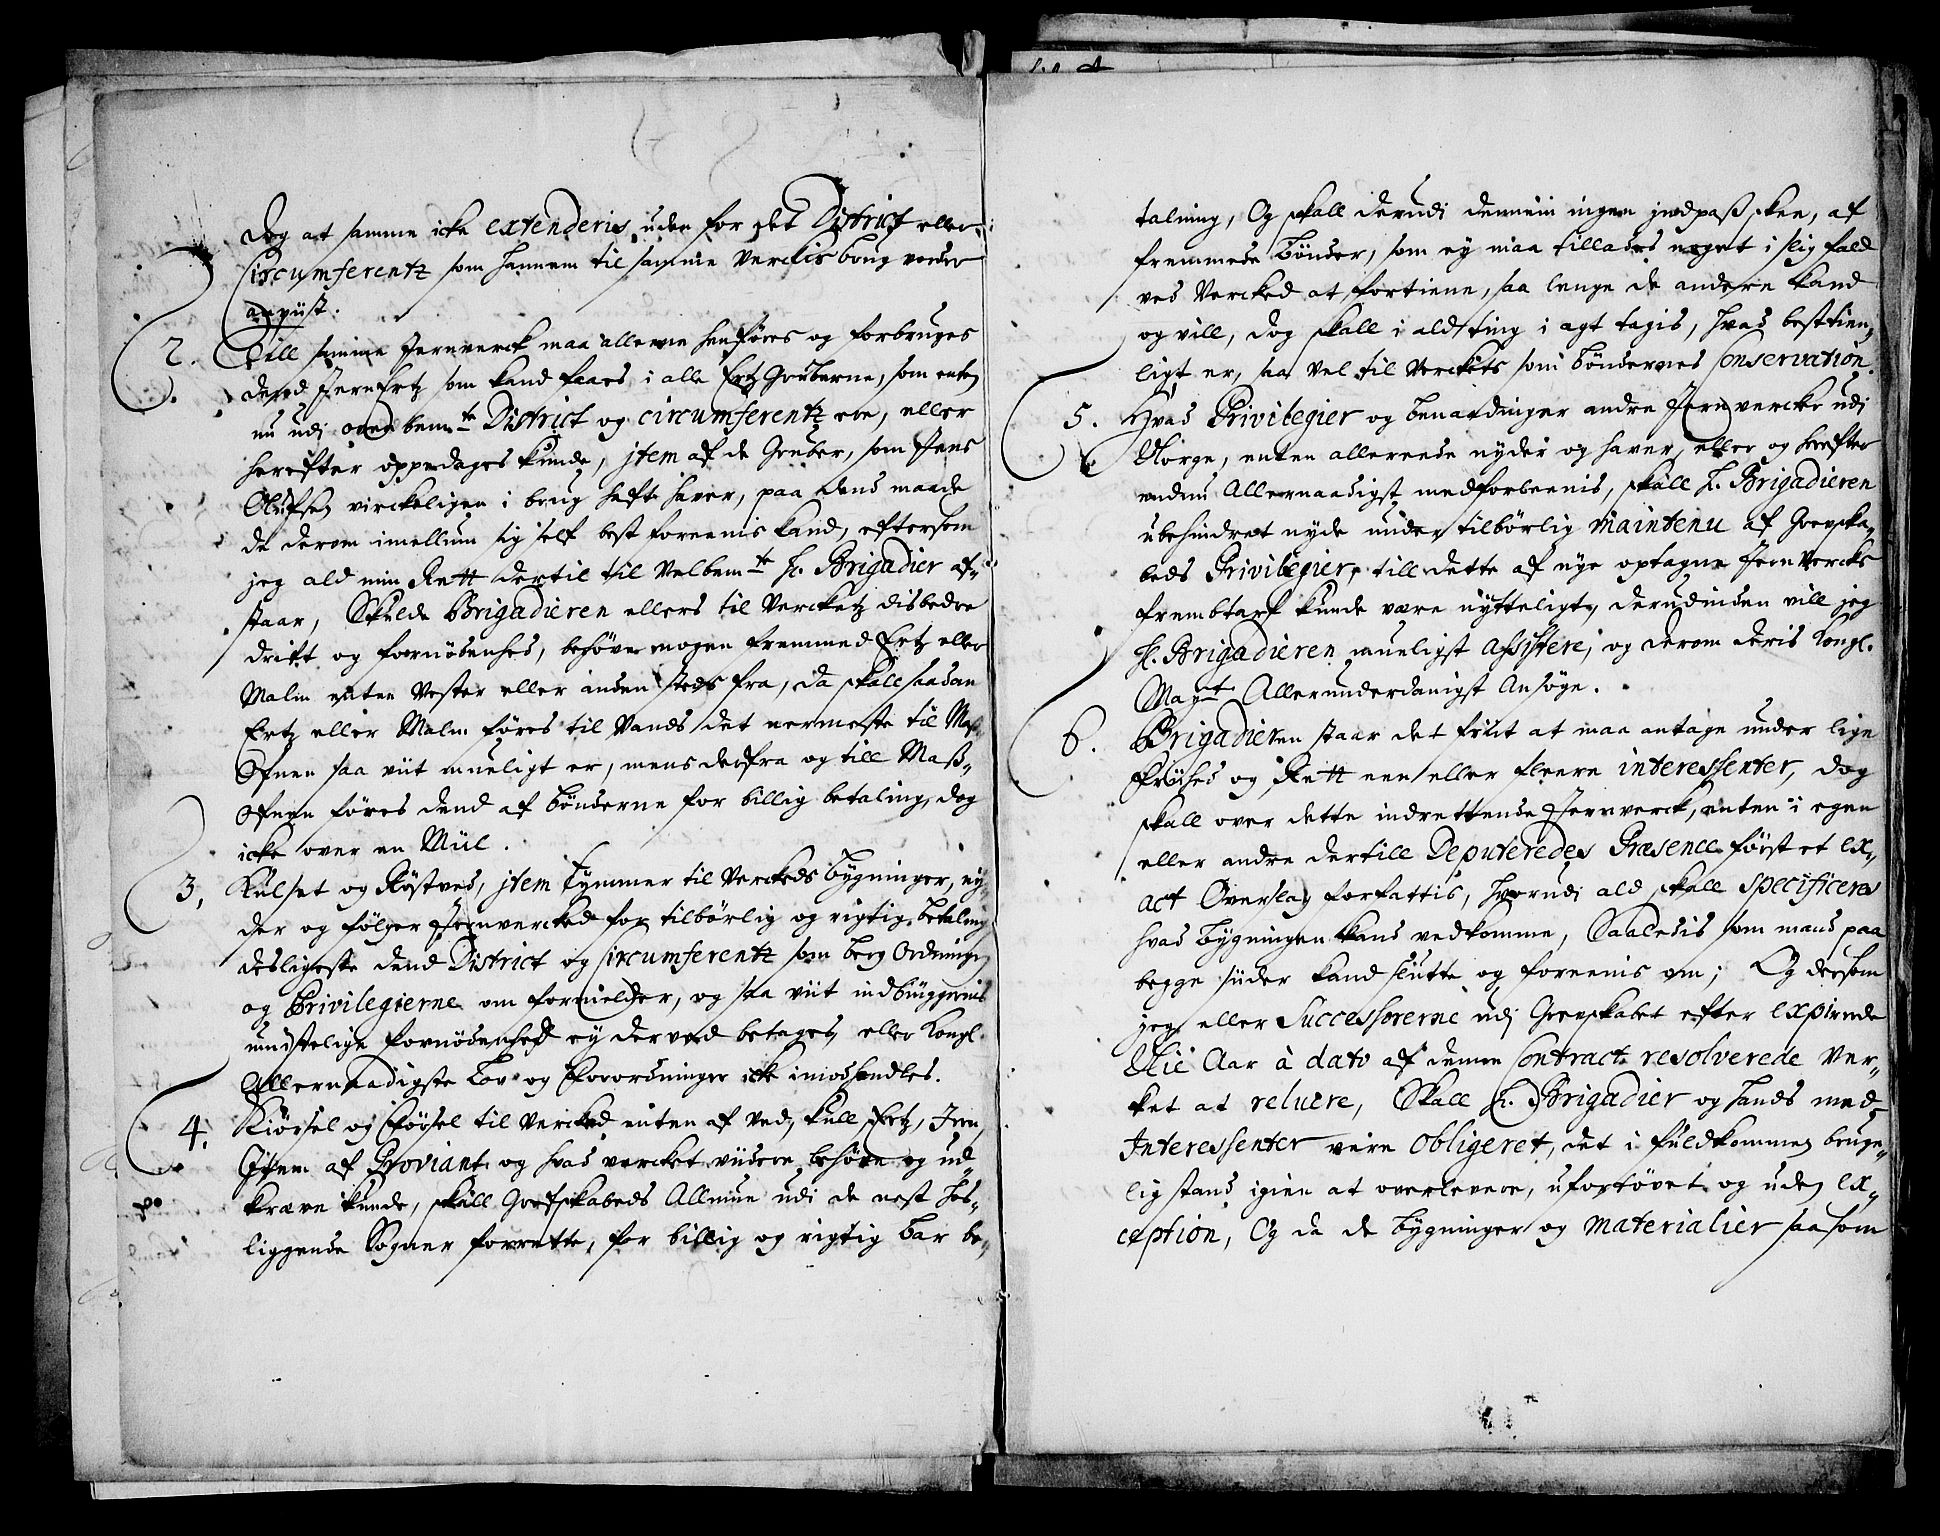 Dog at samme icke extenderis uden for det District eller
Circumferentz som hannem til samme Verckis brug vorder
anviist.
2. Till samme Jernverck maa alleene henføres og forbruges
dend Jern Ertz som kand faaes i alle Ertz Gruberne, som enten
nu udi ovenbemte District og circumferentz ere, eller
herefter oppdages kunde, jtem af de Gruber, som Jens
Olufsen virckeligen i brug hafft haver, paa dend maade
de derom imellum sig self best foreenis kand, eftersom
jeg ald min Rett dertil til Velbemte Hr. Brigadier af-
staar, Skulde Brigadieren ellers til Verckets disbedre
drift og fornødenhed, behøve nogen fremmed Ertz eller
Malm enten Vester eller anden steds fra, da skall saadan
Ertz eller Malm føres til Vands det nermeste til Mas-
Ofnen saa viit mueligt er, mens derfra og till Mass-
Ofnen føres dend af bønderne for billig betaling, dog
icke over en Miil.
3. Kulset og Røstved, jtem Tymmer til Verckeds bygninger, ny-
der og følger Jernvercked for tilbørlig og rigtig betaling
desligeste dend District og circumferentz som berg Ordningen
og Privilegierne om formelder, og saa viit indbyggernis
uundstelige fornødenhed ey derved betages, eller Kongl.
Allernaadigste Lov og Forordninger icke imodhandles.
4. Kiørsel og Førsel til Vercked enten af Ved, Kull, Ertz, Jern,
Item af Proviant, og hvad vercket viidere behøve og ud-
kræve kunde, skall Grefskabeds Allmue udi de nest hos-
liggende Sogner forrette, for billig og rigtig bar be-
talning, Og skall derudi dennem ingen jndpass skee, af
fremmede bønder, som ey maa tillades noget i slig fald
ved Vercked at fortiene, saa lenge de andere kand
og vill, dog skall i ald ting i agt tagis, hvad besttien-
ligt er, saa vel til Verckets som bøndernes Conservation.
5. Hvad Privilegier og benaadinger andre Jernvercke udi
Norge, enten allereede nyder og haver, eller og herefter
endnu Allernaadigst medforleenis, skall Hr. Brigadieren
ubehindret nyde under tilbørlig maintenu af Grevska-
beds Privilegier, till dette af nye optagne Jern Vercks
fremtarf kunde være nytteligt, derudinden vill jeg
Hr. Brigadieren mueligst assistere, og derom deris Kongl.
Mayt Allerunderdanigst Ansøge.
6. Brigadieren staar det friit at maa antage under lige
Friihed og Rett een eller fleere interessenter, dog
skall over dette indrettende Jernverck, enten i egen
eller andre dertill Deputeredes Præsence først et ex-
act Overslag forfattis, hvorudi ald skall specificeres
hvad bygningen kand vedkomme, Saaledis som mand paa
begge siider kand slutte og foreenis om; Og dersom
jeg eller Successorerne udi Grevskabet efter expirede
Tie Aar à dato af denne Contract resolverede Ver-
ket at reluere, Skall Hr. Brigadier og hands med-
Interessenter vere obligeret, det i fuldkommen bruge-
lig stand igien at overlevere, ufortøvet og uden ex-
ception, Og da de bygninger og materialier saasom